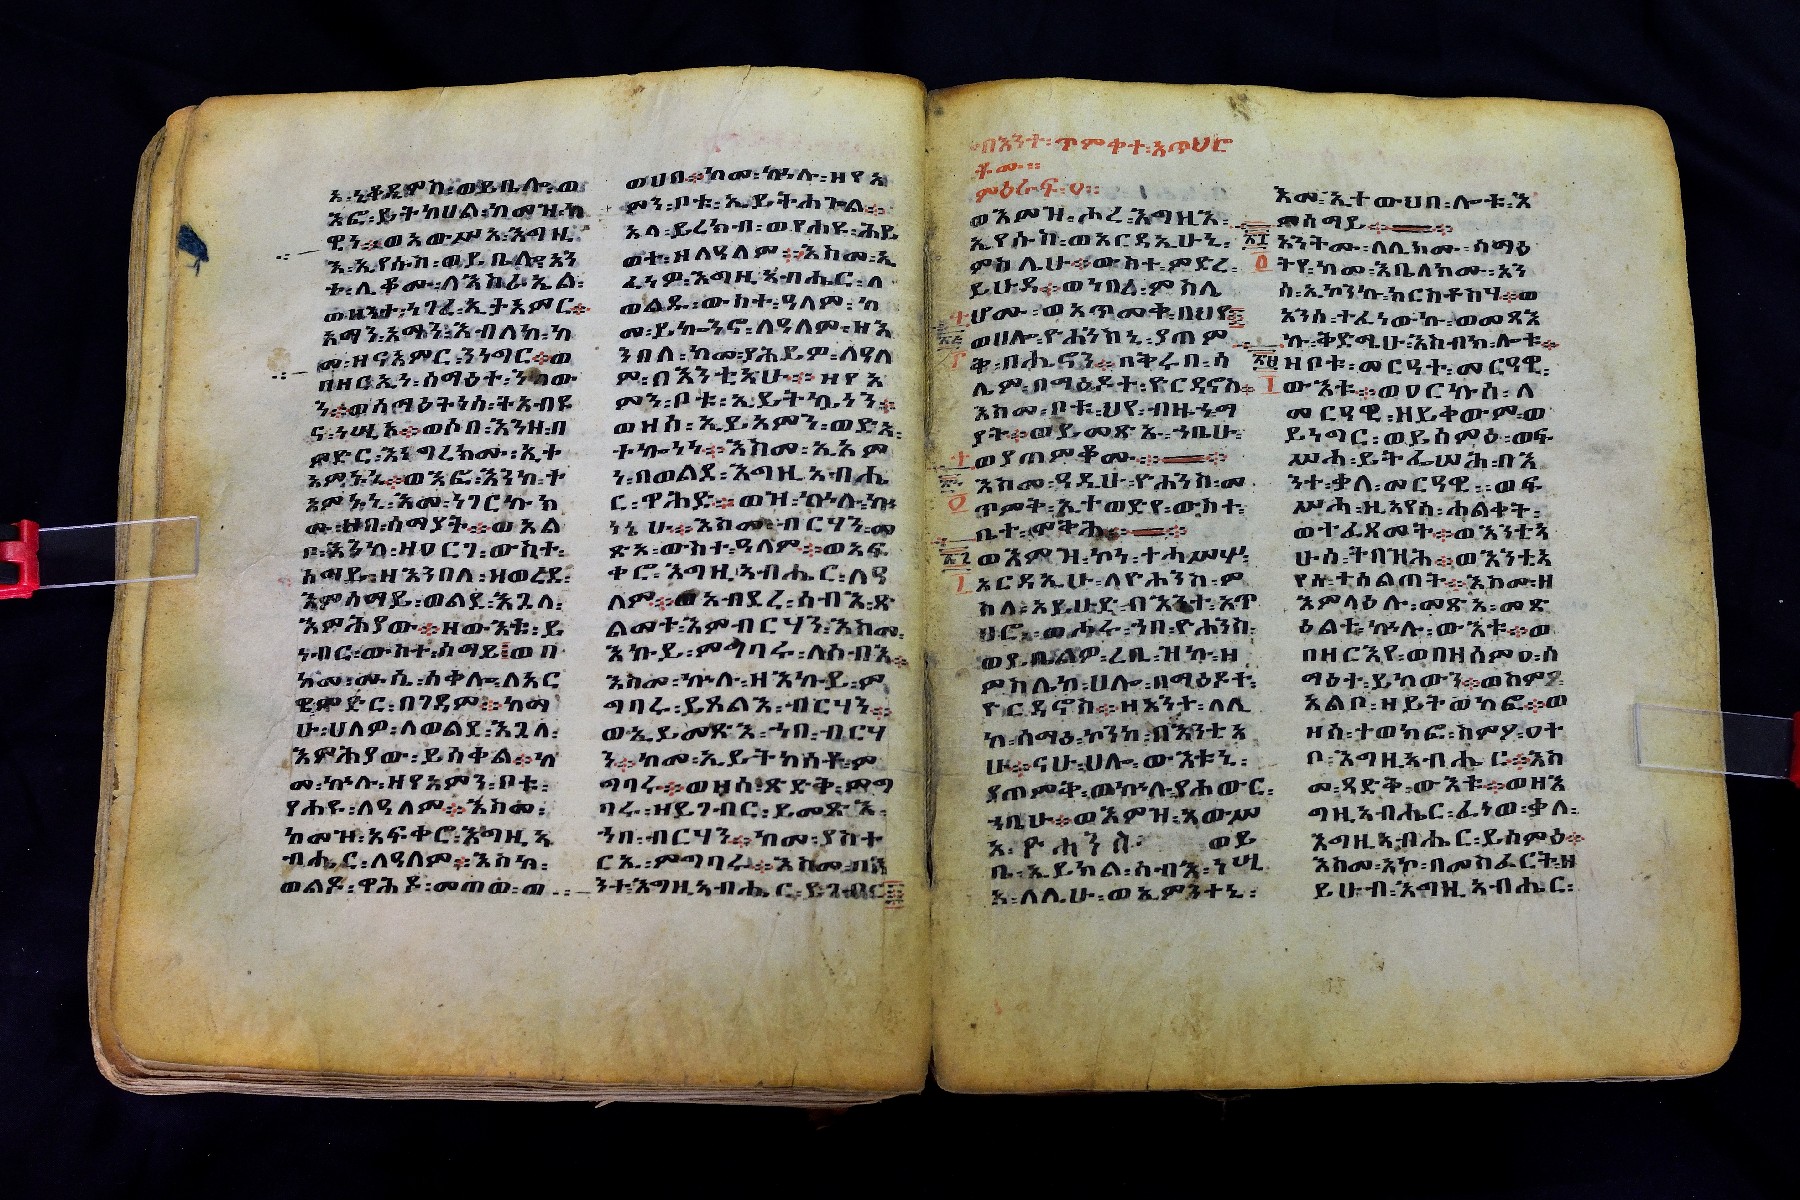 አ፡ኒቆዲሞስ፡ወይቤሎ፡ወ
እፎ፡ይትከሀል፡ከመዝ፡ከ
ዊን፨ወአውሥአ፡እግዚ
እ፡ኢየሱስ፡ወይቤሎ፡አን
ተ፡ሊቆሙ፡ለእስራኤል፡
ወዘንተ፡ነገረ፡ኢተአምር፨
አማን፡አማን፡እብለከ፡ከ
መ፡ዘናአምር፡ንነግር፨ወ
በዘርኢነ፡ሰማዕተ፡ንከው
ን፨ወስማዕትነሰ፡ትአብዩ
ና፡ነሢአ፨ወሶበ፡እንዘ፡በ
ምድር፡እነግረክሙ፡ኢተ
አምኑኒ፨ወእፎ፡እንከ፡ተ
አምኑኒ፡እመ፡ነገርኩክ
ሙ፡ዘበ፡ሰማያት፨ወአል
ቦ፡እንከ፡ዘዐርገ፡ውስተ፡
ሰማይ፡ዘእንበለ፡ዘወረደ፡
እምሰማይ፡ወልደ፡እጓለ፡
እምሕያው፨ዘውእቱ፡ይ
ነብር፡ውስተ፡ሰማይ፡ወበ
ከመ፡ሙሴ፡ሰቀሎ፡ለአር
ዌምድር፡በገዳም፨ከማ
ሁ፡ሀለዎ፡ለወልደ፡እጓለ፡
እምሕያው፡ይሰቀል፨ከ
መ፡ኵሉ፡ዘየአምን፡ቦቱ፡
የሐዩ፡ለዓለም፨እስመ፡
ከመዝ፡አፍቀሮ፡እግዚአ
ብሔር፡ለዓለም፨እስከ፡
ወልዶ፡ዋሕዶ፡መጠወ፡ወ
ወሀበ፨ከመ፡ኵሉ፡ዘየአ
ምን፡ቦቱ፡ኢይትሐጐል፨
አላ፡ይረክብ፡ወየሐዩ፡ሕይ
ወተ፡ዘለዓለም፨እስመ፡ኢ
ፈነዎ፡እግዚአብሔር፡ለ
ወልዱ፡ውስተ፡ዓለም፡ከ
መ፡ይኰንኖ፡ለዓለም፡ዘእ
ንበለ፡ከመ፡ያሕይዎ፡ለዓለ
ም፡በእንቲአሁ፨ዘየአ
ምን፡ቦቱ፡ኢይትኴነን፨
ወዘሰ፡ኢይአምን፡ወድአ፡
ተኰነነ፨እስመ፡ኢአም
ነ፡በወልደ፡እግዚአብሔ
ር፡ዋሕድ፨ወዝ፡ኵሉ፡ኵ
ነኔሁ፨እስመ፡ብርሃን፡መ
ጽአ፡ውስተ፡ዓለም፨ወአፍ
ቀሮ፡እግዚአብሔር፡ለዓ
ለም፨ወአብደረ፡ሰብእ፡ጽ
ልመተ፡እምብርሃን፡እስመ፡
እኩይ፡ምግባሩ፡ለሰብእ፨
እስመ፡ኵሉ፡ዘእኩይ፡ም
ግባሩ፡ይጸልእ፡ብርሃነ፨
ወኢይመጽእ፡ኀበ፡ብርሃ
ን፨ከመ፡ኢይትከሰት፡ም
ግባሩ፨ወዘሰ፡ጽድቅ፡ምግ
ባሩ፡ዘይገብር፡ይመጽእ፡
ኀበ፡ብርሃን፨ከመ፡ያስተ
ርኢ፡ምግባሩ፨እስመ፡በእ
ንተ፡እግዚአብሔር፡ይገብር፡
በእንተ፡ጥምቀተ፡አጥህሮ
ቶሙ፡፡
ምዕራፍ፡፡
ወእምዝ፡ሖረ፡እግዚእ፡
ኢየሱስ፡ወአርዳኢሁኒ፡
ምስሌሁ፨ውስተ፡ምድረ፡
ይሁዳ፨ወነበረ፡ምስሌ
ሆሙ፡ወአጥመቀ፡በህየ፡
ወሀሎ፡ዮሐንስኒ፡ያጠም
ቅ፡በሔኖን፨በቅሩበ፡ሳ
ሌም፡በማዕዶተ፡ዮርዳኖስ፡
እስመ፡ቦቱ፡ህየ፡ብዙኅ፡ማ
ያት፨ወይመጽኡ፡ኀቤሁ፡
ወያጠምቆሙ፨
እስመ፡ዓዲሁ፡ዮሐንስ፡መ
ጥምቅ፡ኢተወድየ፡ውስተ፡
ቤተ፡ሞቅሕ፨
ወእምዝ፡ኮነ፡ተሓሥሦ፡
አርዳኢሁ፡ለዮሐንስ፡ም
ስለ፡አይሁድ፡በእንተ፡አጥ
ህሮ፡ወሖሩ፡ኀበ፡ዮሐንስ፡
ወይቤልዎ፡ረቢ፡ዝኩ፡ዘ
ምስሌከ፡ሀሎ፡በማዕዶተ፡
ዮርዳኖስ፨ዘአንተ፡ለሊ
ከ፡ሰማዕ፡ኮንከ፡በእንቲአ
ሁ፨ናሁ፡ሀሎ፡ውእቱኒ፡
ያጠምቅ፡ወኵሉ፡የሐውር፡
ኀቤሁ፨ወእምዝ፡አውሥ
አ፡ዮሐንስ፡ወይ
ቤ፡ኢይክል፡ሰብእ፡ነሢ
አ፡ለሊሁ፡ወኢምንተኒ፡
እመ፡ኢተውህበ፡ሎቱ፡እ
ምሰማይ፨
አንትሙ፡ለሊክሙ፡ሰማዕ
ትየ፡ከመ፡እቤለክሙ፡አን
ሰ፡ኢኮንኩ፡ክርስቶስሃ፨ወ
አንሰ፡ተፈነውኩ፡ወመጻእ
ኩ፡ቅድሜሁ፡እስብክ፡ሎቱ፨
ዘቦቱ፡መርዓተ፡መርዓዊ፡
ውእቱ፨ወዐርኩሰ፡ለ
መርዓዊ፡ዘይቀውም፡ወ
ይነግር፡ወይሰምዕ፡ወፍ
ሥሐ፡ይትፌሣሕ፡በእ
ንተ፡ቃለ፡መርዓዊ፡፡ወፍ
ሥሐ፡ዚአየሰ፡ሐልቀት፡
ወተፈጸመት፨ወእንቲአ
ሁሰ፡ትበዝሕ፨ወእንቲአ
የሰ፡ተሰልጠት፨እስመ፡ዘ
እምላዕሉ፡መጽአ፡መጽ
ዕልተ፡ኵሉ፡ውእቱ፨ወ
በዘርእየ፡ወበዘሰምዐ፡ሰ
ማዕተ፡ይከውን፨ወስምዖ
አልቦ፡ዘይትወከፎ፨ወ
ዘሰ፡ተወክፎ፡ስምዖ፡ዐተ
ቦ፡እግዚአብሔር፨እስ
መ፡ጻድቅ፡ውእቱ፨ወዘእ
ግዚአብሔር፡ፈነወ፡ቃለ፡
እግዚአብሔር፡ይሰምዕ፨
እስመ፡አኮ፡በመስፈርት፡ዘ
ይሁብ፡እግዚአብሔር፡